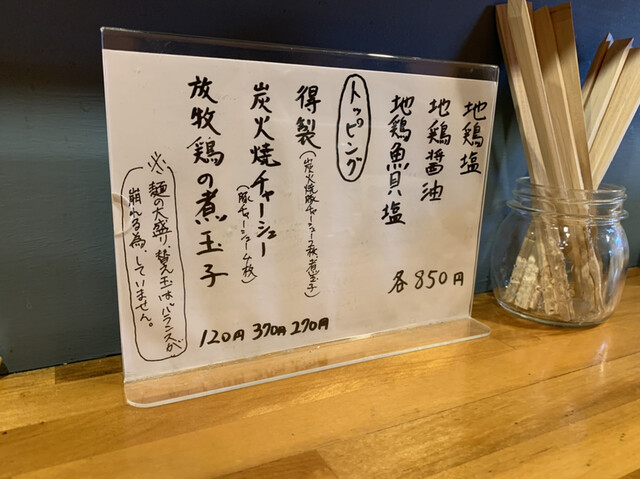 地鶏塩
地鶏醤油
地鶏魚貝塩
各850円
トッピング
得製(炭火焼豚チャーシュー2枚、煮玉子)
270円
炭火焼チャーシュー
(豚チャーシュー4枚)
370円
放牧鶏の煮玉子
120円
※麺の大盛り、替え玉はバランスが
崩れる為、していません。